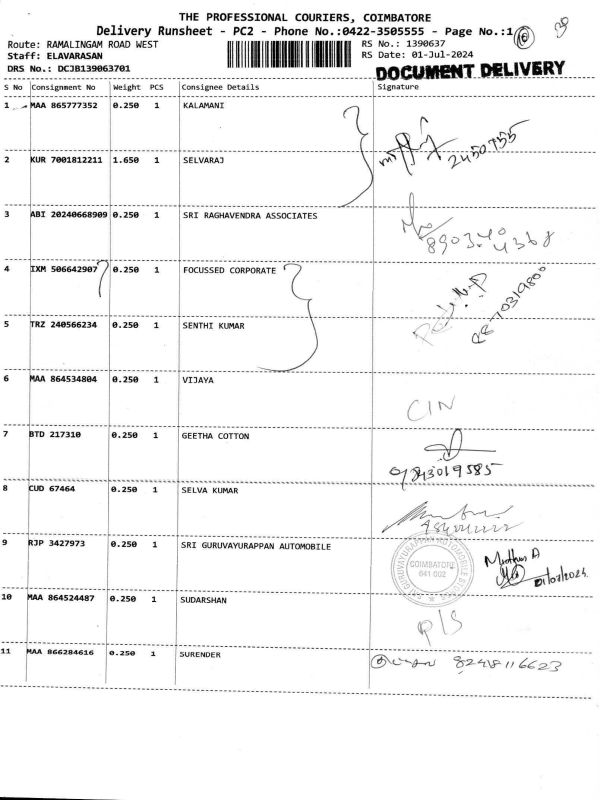 THE PROFESSIONAL COURIERS, COIMBATORE
Delivery Runsheet - PC2 - Phone No.:0422-3505555 - Page No.:1 10
Route: RAMALINGAM ROAD WEST RS No.: 1390637
Staff: ELAVARASAN RS Date: 01-Jul-2024
DRS No.: DCJB139063701 DOCUMENT DELIVERY
S No Consignment No Weight PCS Consignee Details Signature
1 MAA 865777352 0.250 1 KALAMANI
2450755
2 KUR 7001812211 1.650 1 SELVARAJ
3 ABI 20240668909 0.250 1 SRI RAGHAVENDRA ASSOCIATES
89034o
4368
4 IXM 506642907 0.250 1 FOCUSSED CORPORATE
5 TRZ 240566234 0.250 1 SENTHI KUMAR
6 MAA 864534804 0.250 1 VIJAYA
CIN
7 BTD 217310 0.250 1 GEETHA COTTON
9843019585
8 CUD 67464 0.250 1 SELVA KUMAR
9 RJP 3427973 0.250 1 SRI GURUVAYURAPPAN AUTOMOBILE
COIMBATORE
641 002
01/07/2024
10 MAA 864524487 0.250 1 SUDARSHAN
P/S
11 MAA 866284616 0.250 1 SURENDER
8248116623